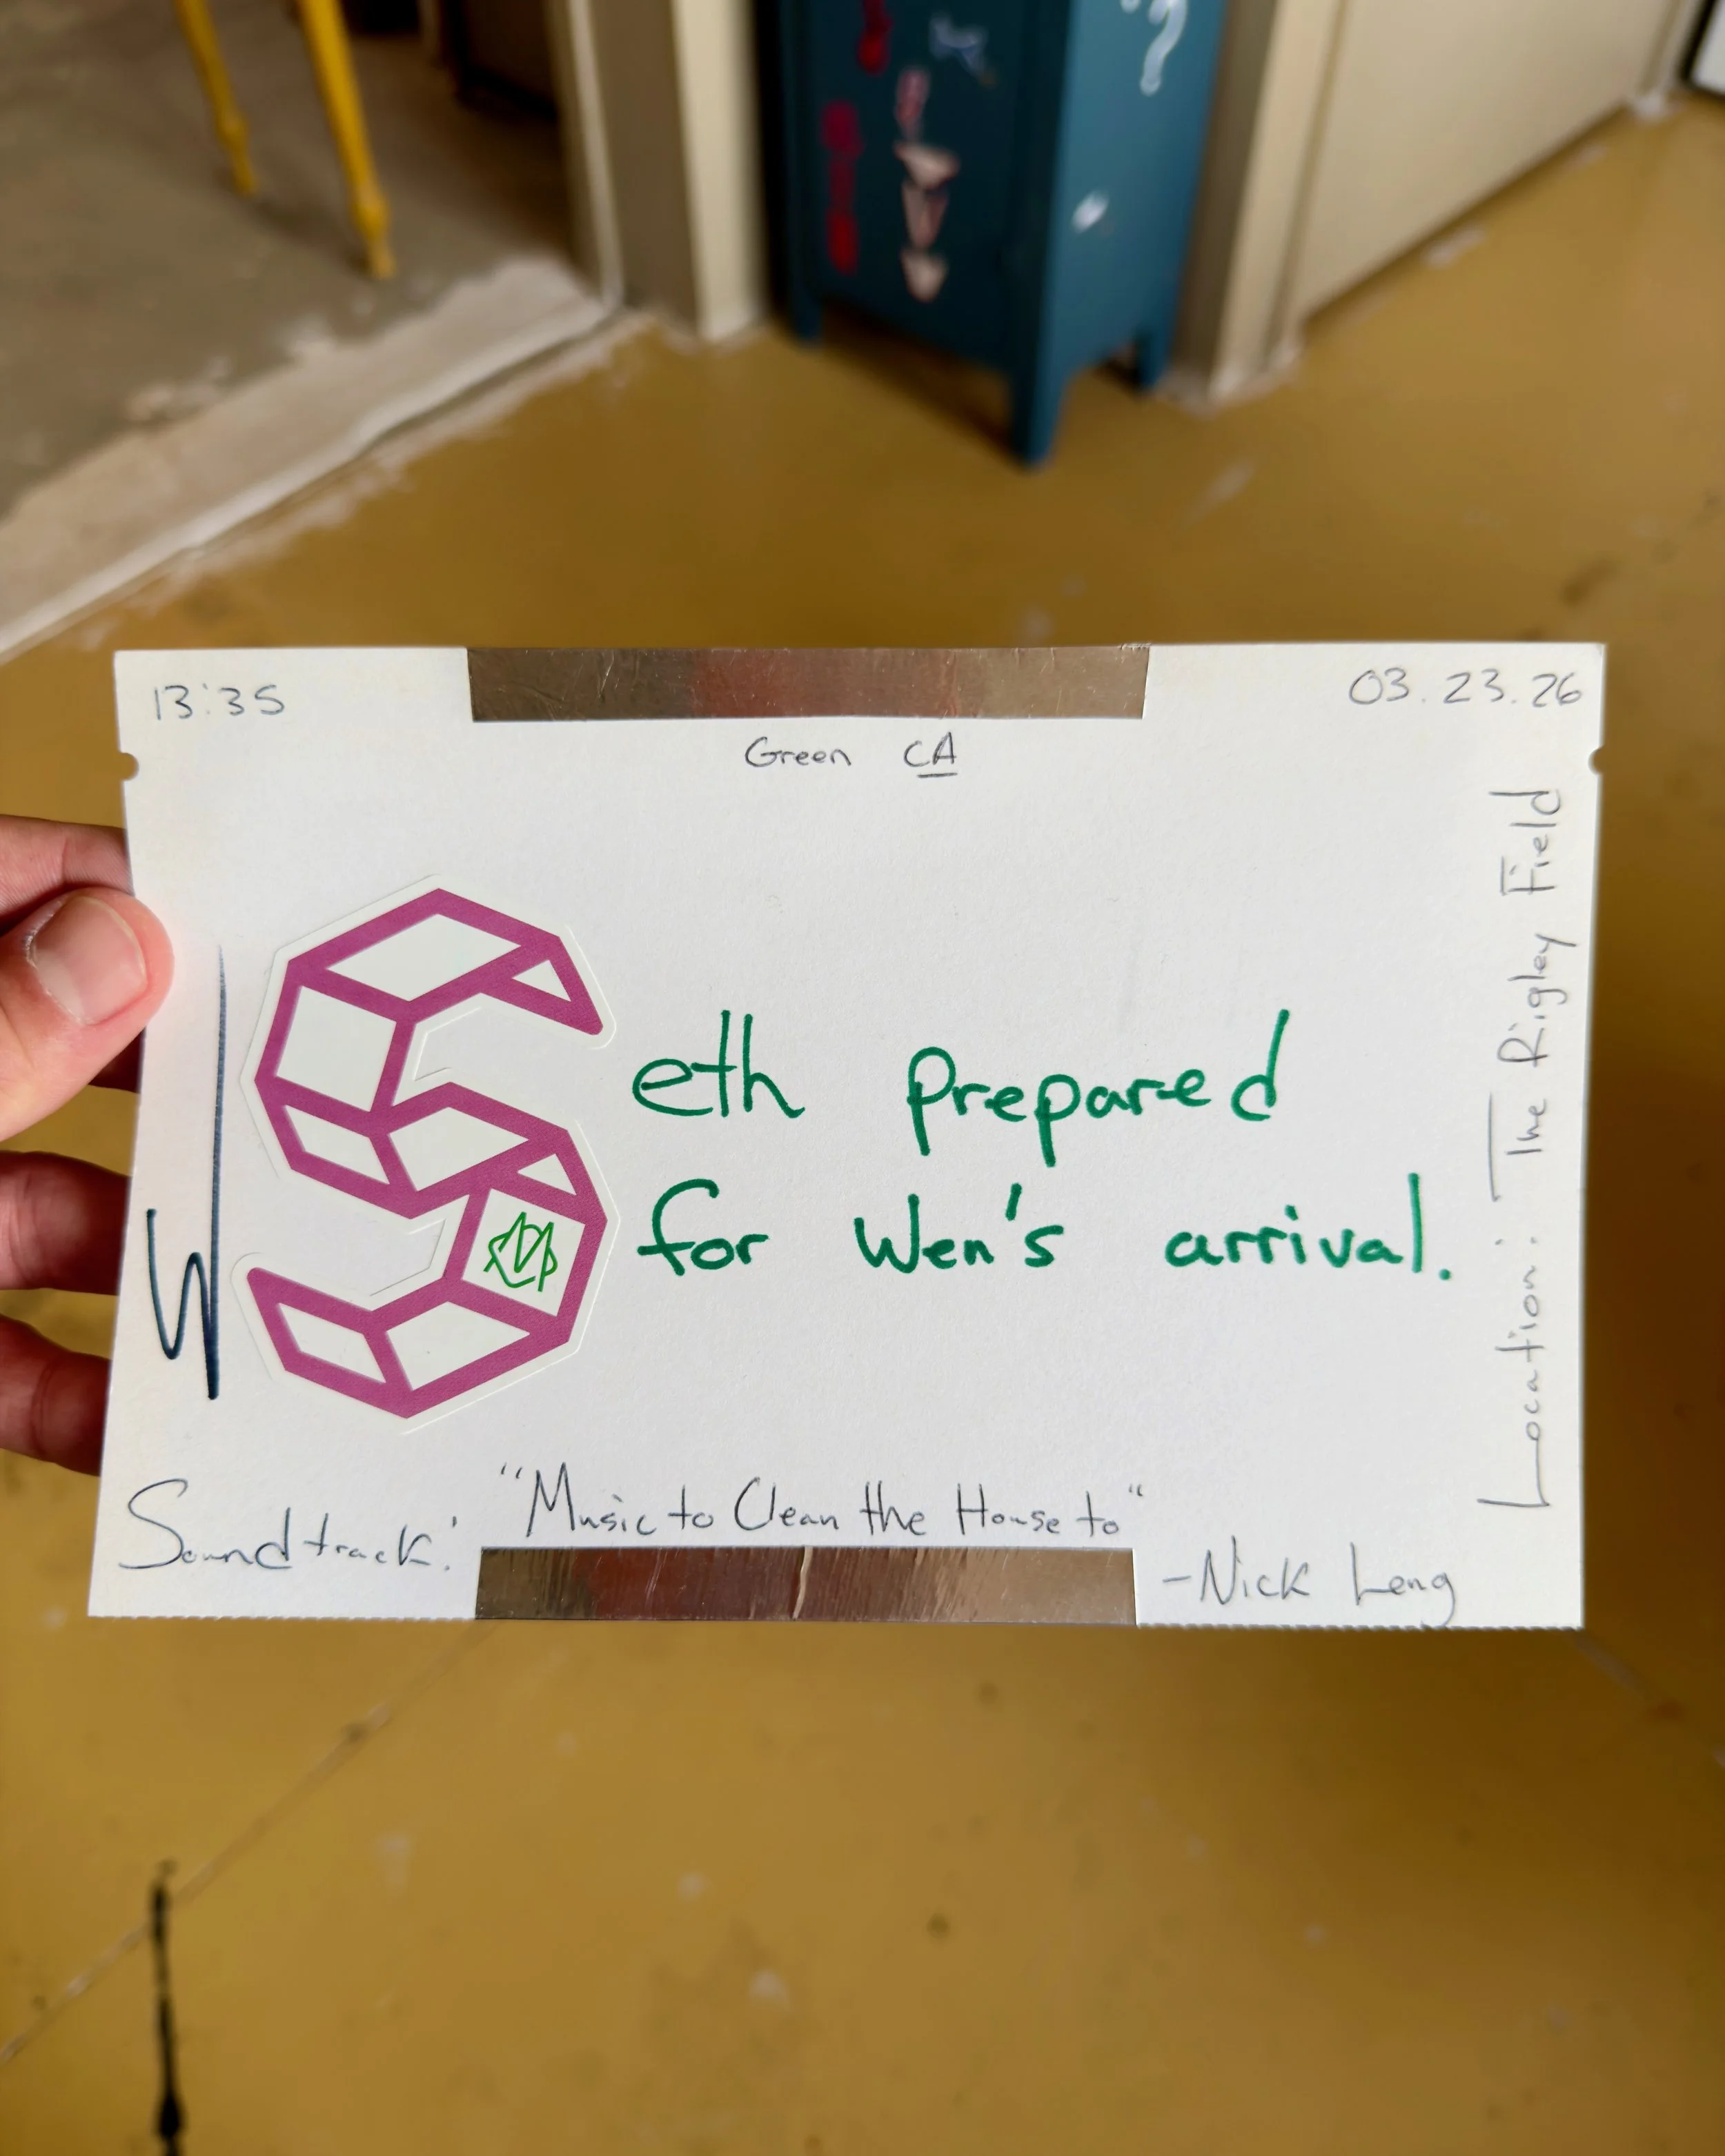 13:35
03.23.26
Green CA
Seth prepared
for Wen's arrival.
Location: The Rigley Field
Soundtrack: "Music to Clean the House to"
-Nick Leng